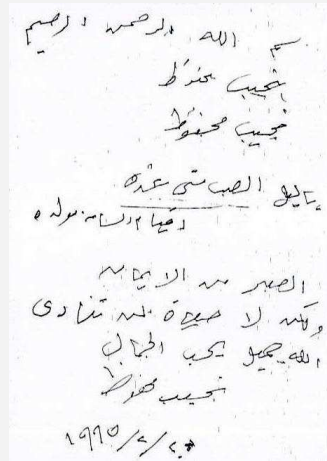 بسم الله الرحمن الرحيم
نجيب محفوظ
نجيب محفوظ
ياليل الصب متى غده
أقيام الساعة موعده
الصبر من الايمان
ولكن لا حياة لمن تنادى
الله جميل يحب الجمال
نجيب محفوظ